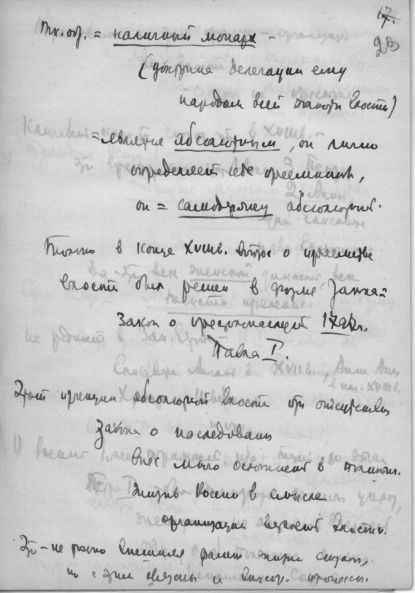 17.
28
Т. обр. = наличный монарх –
(доктрина делегации ему
народом всей власти)
= является абсолютным, он лично
определяет себе преемника,
он = самодержец абсолютный.
Только в конце XVIII в. вопрос о преемстве
власти был решен в форме закона =
закон о престолонаследии 1797 г.
Павла I.
Этот принцип абсолютной власти при отсутствии
закона о наследовании
внес много осложнений в
жизнь России в смысле
организации верховной власти.
Это – не только внешний факт жизни страны,
но с этим связаны и